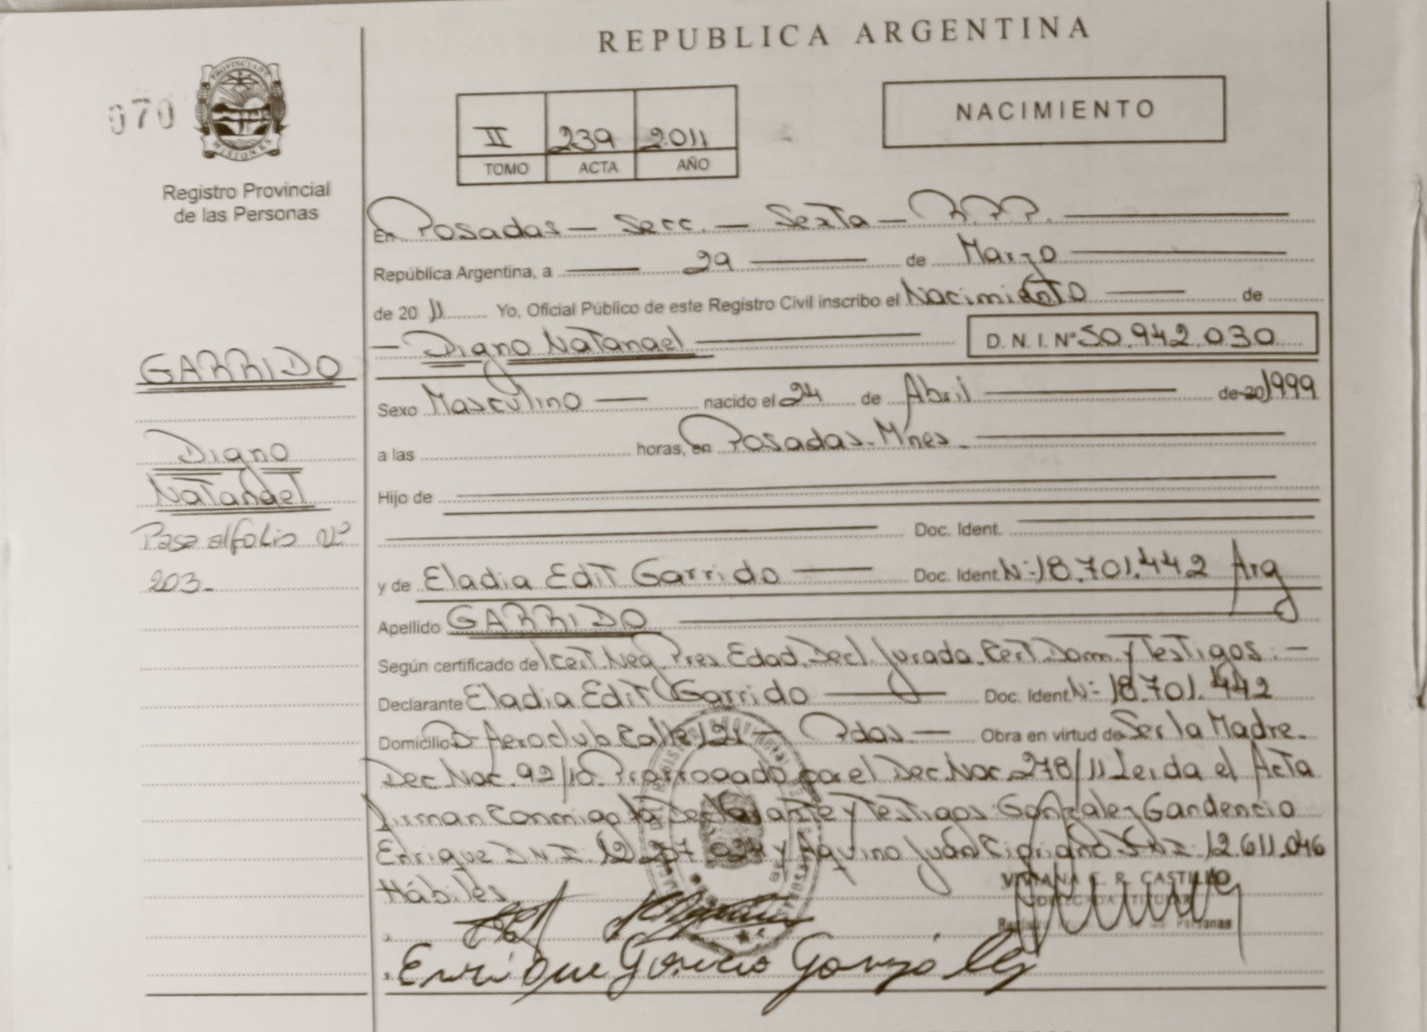 REPUBLICA ARGENTINA
070
PROVINCIA DE MISIONES
Registro Provincial
de las Personas
II 239 2.011
TOMO ACTA AÑO
NACIMIENTO
En Posadas - Secc. - Sexta - R.P.P.
República Argentina, a 29 de Marzo
de 20 11 Yo, Oficial Público de este Registro Civil inscribo el Nacimiento de
- Digno Natanael D. N. I. Nº 50.942.030
GARRIDO
Sexo Masculino nacido el 24 de Abril de 20 1999
a las horas, en Posadas - Mnes
Digno
Natanael
Hijo de
Doc. Ident.
Pase al folio Nº
203.-
y de Eladia Edit Garrido Doc. Ident. Nº 18.701.442 Arg
Apellido GARRIDO
Según certificado de Cert. Neg. Pres. Edad. Decl. Jurada. Cert. Dom. y Testigos. -
Declarante Eladia Edit Garrido Doc. Ident. Nº 18.701.442
Domicilio Aeroclub Calle 121 - Pdas - Obra en virtud de Ser la Madre.
Dec. Nac. 92/10. Prorrogado por el Dec. Nac. 278/11 Leida el Acta
Firman Conmigo la Declarante y Testigos Gonzalez Gandencio
Enrique D.N.I. y Aquino Juan Cipriano D.N.I. 12.611.046
Hábiles
VIVIANA E. R. CASTILLO
DELEGADA TITULAR
Personas
Enrique González